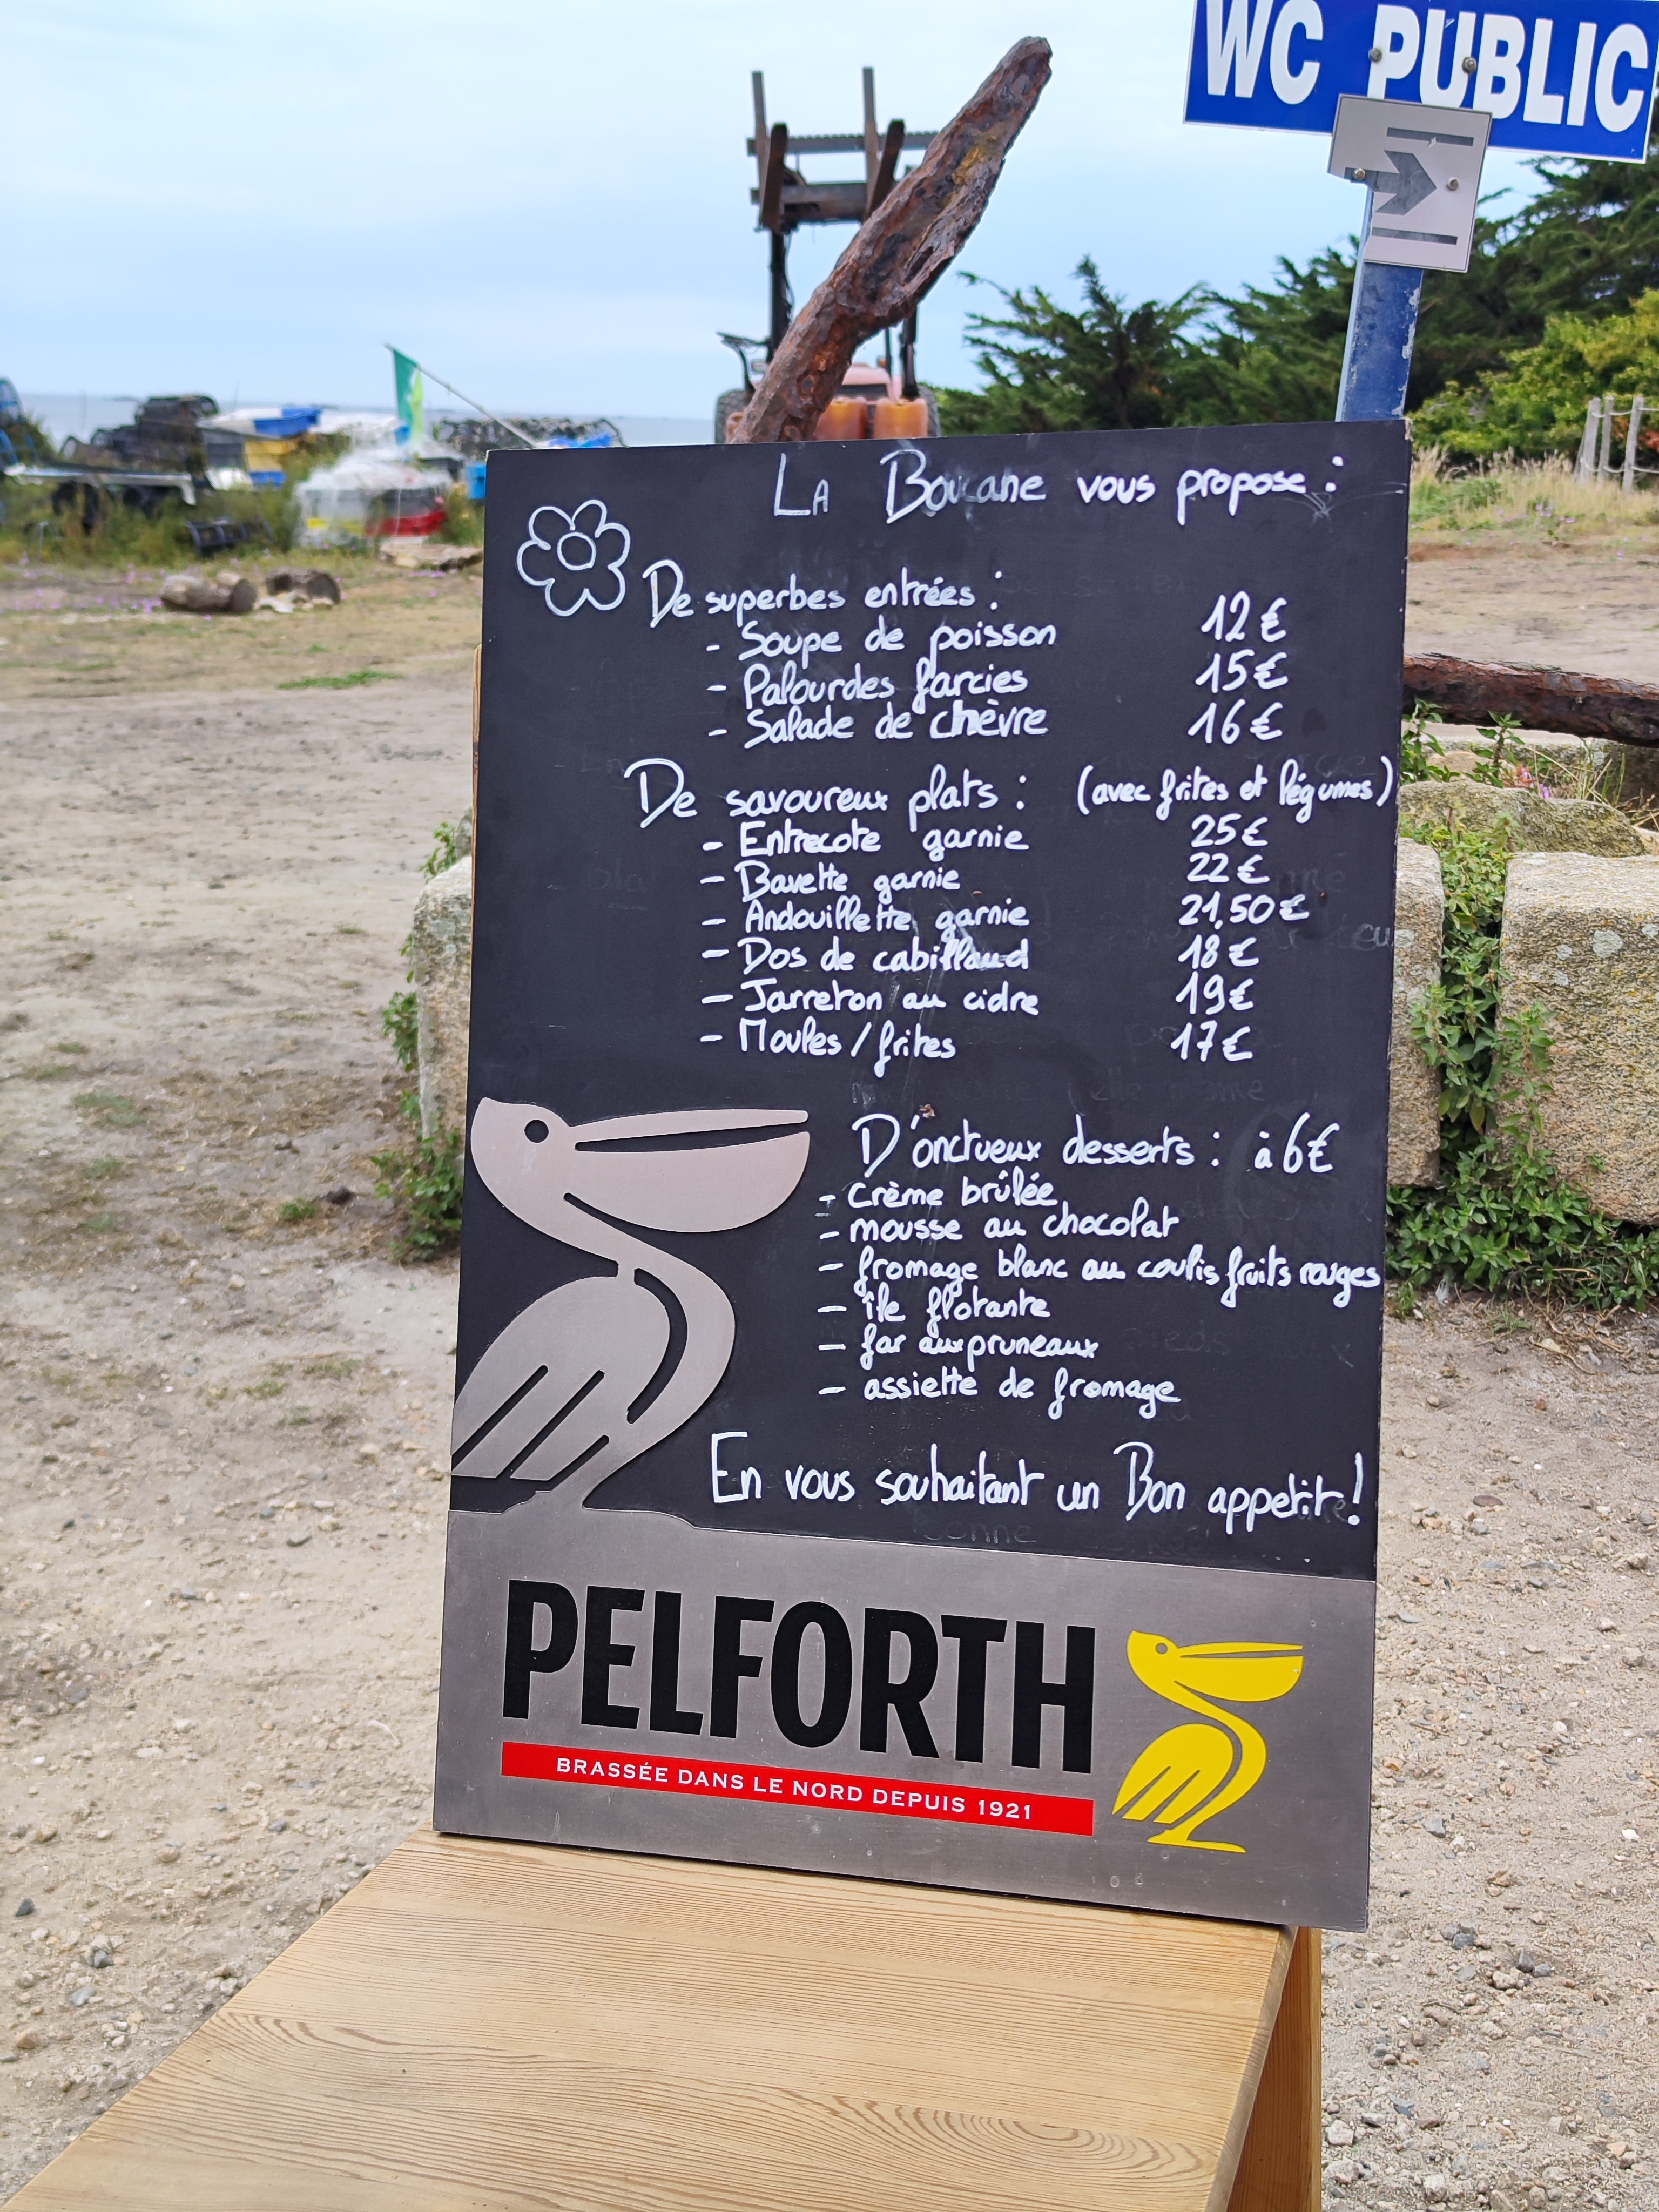 WC PUBLIC
La Boucane vous propose :
De superbes entrées :
- Soupe de poisson 12€
- Palourdes farcies 15€
- Salade de chèvre 16€
De savoureux plats : (avec frites et légumes)
- Entrecote garnie 25€
- Bavette garnie 22€
- Andouillette garnie 21,50€
- Dos de cabillaud 18€
- Jarreton au cidre 19€
- Moules / frites 17€
D'onctueux desserts : à 6€
- crème brûlée
- mousse au chocolat
- fromage blanc au coulis fruits rouges
- île flotante
- far aux pruneaux
- assiette de fromage
En vous souhaitant un Bon appetit !
PELFORTH
BRASSÉE DANS LE NORD DEPUIS 1921